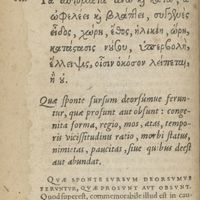 ὠφελέει κ̀ βλάπτει, συγγενὲς
εἶδος, χώρη, ἔθος, ἡλικίη, ὥρη,
κατάστασις νούσου, ὑπερβολὴ,
ἔλλειψις, οἷσιν ὁκόσον λείπεται,
ἢ οὔ.
Quæ sponte sursum deorsumue ferun-
tur, quæ prosunt aut obsunt: conge-
nita forma, regio, mos, ætas, tempo-
ris vicissitudinis ratio, morbi status,
nimietas, paucitas, siue quibus deest
aut abundat.
QVÆ SPONTE SVRSVM DEORSVMVE
FERVNTVR, QVÆ PROSVNT AVT OBSVNT.
Quod superest, commemorabile illud est in cau-